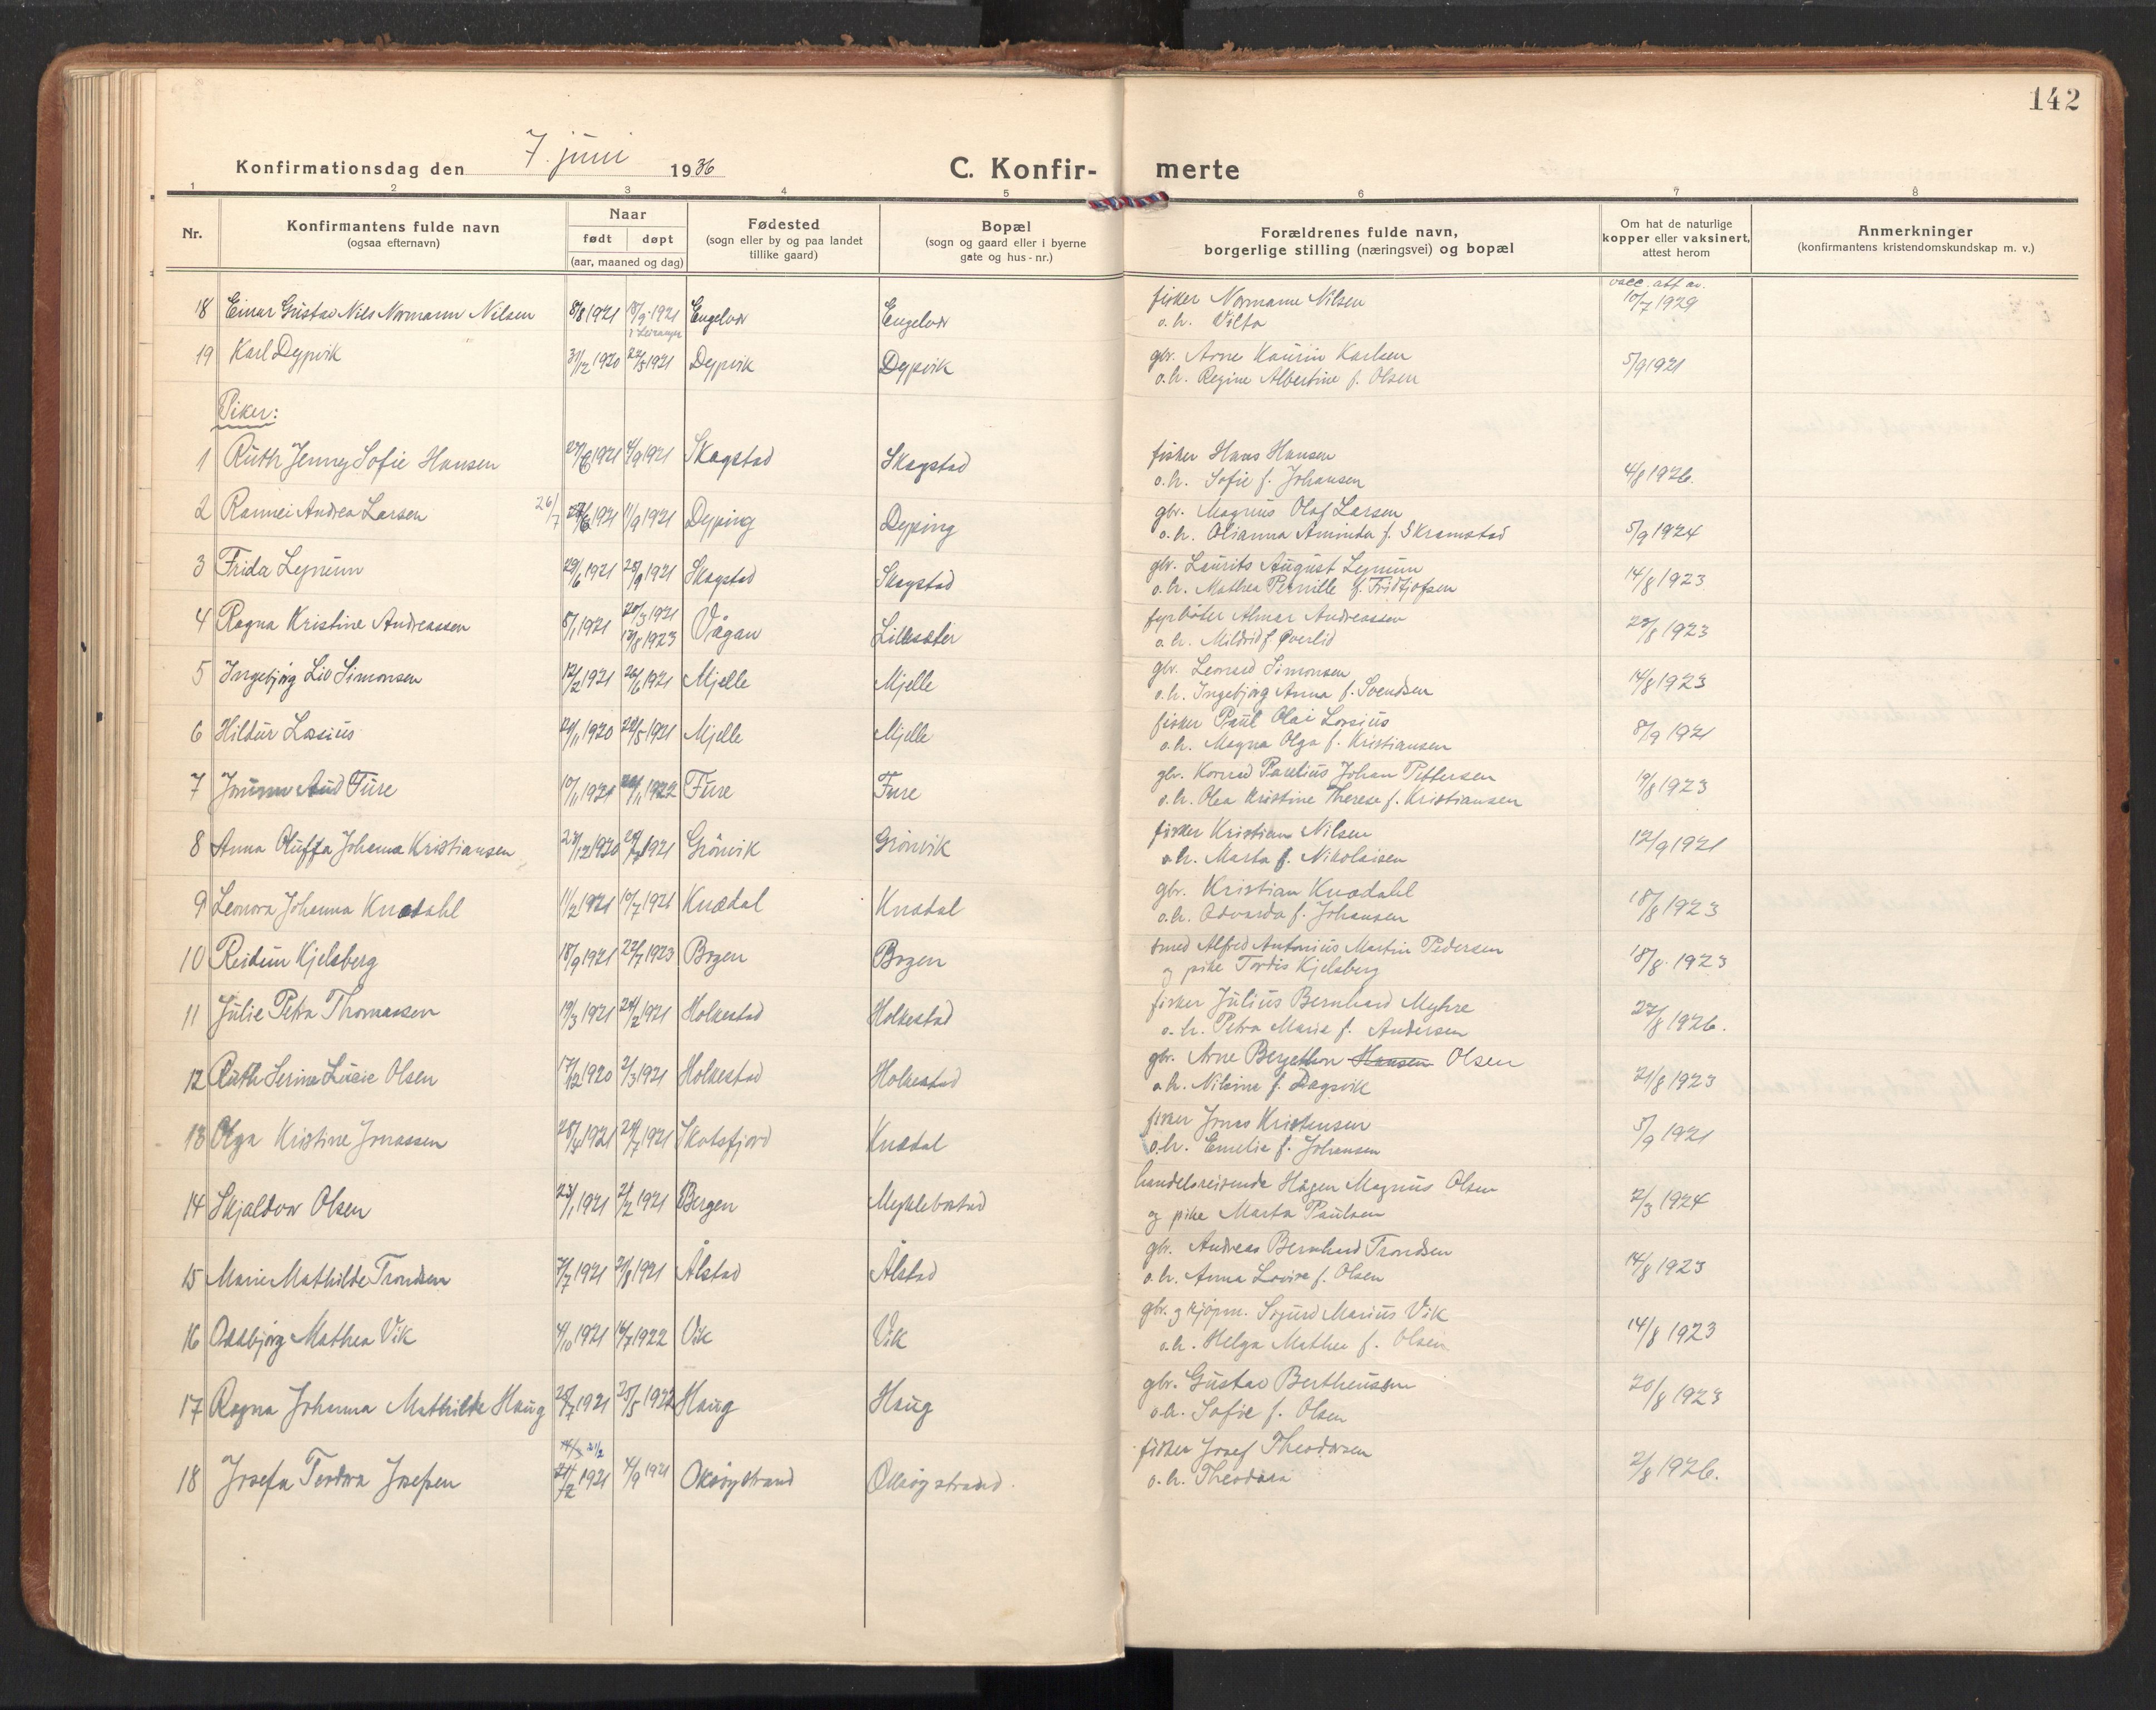 142
Konfirmationsdag den 7. juni 1936
C. Konfir- merte
1 2 3 4 5 6 7 8
Nr. Konfirmantens fulde navn (ogsaa efternavn) Naar født døpt (aar, maaned og dag) Fødested (sogn eller by og paa landet tillike gaard) Bopæl (sogn og gaard eller i byerne gate og hus-nr.) Forældrenes fulde navn, borgerlige stilling (næringsvei) og bopæl Om hat de naturlige kopper eller vaksinert, attest herom Anmerkninger (konfirmantens kristendomskundskap m. v.)
18 Einar Gustav Nils Normann Nilsen 8/8 1921 18/9 1921 i Leiranger Engelvær Engelvær fisker Normann Nilsen vacc. att av. 10/7 1929
o.h. Vilta
19 Karl Dypvik 31/12 1920 22/5 1921 Dypvik Dypvik gbr. Arne Kaurin Karlsen 5/9 1921
o.h. Regine Albertine f. Olsen
Piker:
1 Ruth Jenny Sofie Hansen 27/6 1921 4/9 1921 Skagstad Skagstad fisker Hans Hansen
o.h. Sofie f. Johansen 4/8 1926.
2 Rannei Andrea Larsen 26/7 1921 11/9 1921 Dyping Dyping gbr. Magnus Olaf Larsen
o.h. Olianna Aminda f. Skramstad 5/9 1924
3 Frida Lynum 29/6 1921 25/9 1921 Skagstad Skagstad gbr. Laurits August Lynum
o.h. Mathea Pernille f. Fridtjofsen 14/8 1923
4 Ragna Kristine Andreassen 8/1 1921 20/3 1921 Vågan Lillesæter fyrbøter Almar Andreassen
13/8 1923 o.h. Mildrid f. Øverlid 23/8 1923
5 Ingebjørg Liv Simonsen 12/2 1921 26/6 1921 Mjelle Mjelle gbr. Leonard Simonsen
o.h. Ingebjørg Anna f. Svendsen 14/8 1923
6 Hildur Lorsius 29/11 1920 22/5 1921 Mjelle Mjelle fisker Paul Olai Lorsius
o.h. Magna Olga f. Kristiansen 8/9 1921
7 Jorunn Aud Fure 10/11 1921 1922 Fure Fure gbr. Konrad Paulius Johan Pettersen
o.h. Olea Kristine Therese f. Kristiansen 19/8 1923
8 Anna Oluffa Johanna Kristiansen 23/12 1920 1921 Grönvik Grönvik fisker Kristian Nilsen
o.h. Marta f. Nikolaisen 12/9 1921
9 Leonora Johanna Knædahl 11/2 1921 10/7 1921 Knædal Knædal gbr. Kristian Knædahl
o.h. Edvarda f. Johansen 18/8 1923
10 Reidun Kjelsberg 18/9 1921 22/7 1923 Bogen Bogen smed Alfred Antonius Martin Pedersen
og pike Tordis Kjelsberg 18/8 1923
11 Julie Petra Thomassen 19/3 1921 24/2 1921 Holkestad Holkestad fisker Julius Bernhard Myhre
o.h. Petra Marie f. Andersen 27/8 1926.
12 Ruth Serine Lucie Olsen 17/12 1920 2/3 1921 Holkestad Holkestad gbr. Arne Bergethon Hansen Olsen
o.h. Nikoline f. Dagsvik 21/8 1923
13 Olga Kristine Jonassen 28/4 1921 24/7 1921 Skotsfjord Knædal fisker Jonas Kristensen
o.h. Emelie f. Johansen 5/9 1921
14 Skjaldvor Olsen 23/1 1921 2/2 1921 Bergen Myklebostad handelsreisende Hågen Magnus Olsen
og pike Marta Paulsen 2/3 1924
15 Marie Mathilde Trondsen 7/7 1921 7/8 1921 Ålstad Ålstad gbr. Andreas Bernhard Trondsen
o.h. Anna Lovise f. Olsen 14/8 1923
16 Oddbjørg Mathea Vik 4/10 1921 16/7 1922 Vik Vik gbr. og kjøpm. Sigurd Marius Vik
o.h. Helga Mathea f. Olsen 14/8 1923
17 Ragna Johanna Mathilde Haug 25/7 1921 25/5 1922 Haug Haug gbr. Gustav Bertheussen
o.h. Sofie f. Olsen 20/8 1923
18 Josefa Teodora Josefsen 21/2 1921 4/9 1921 Oksøystrand Oksøystrand. fisker Josef Theodorsen
o.h. Theodora 2/8 1926.